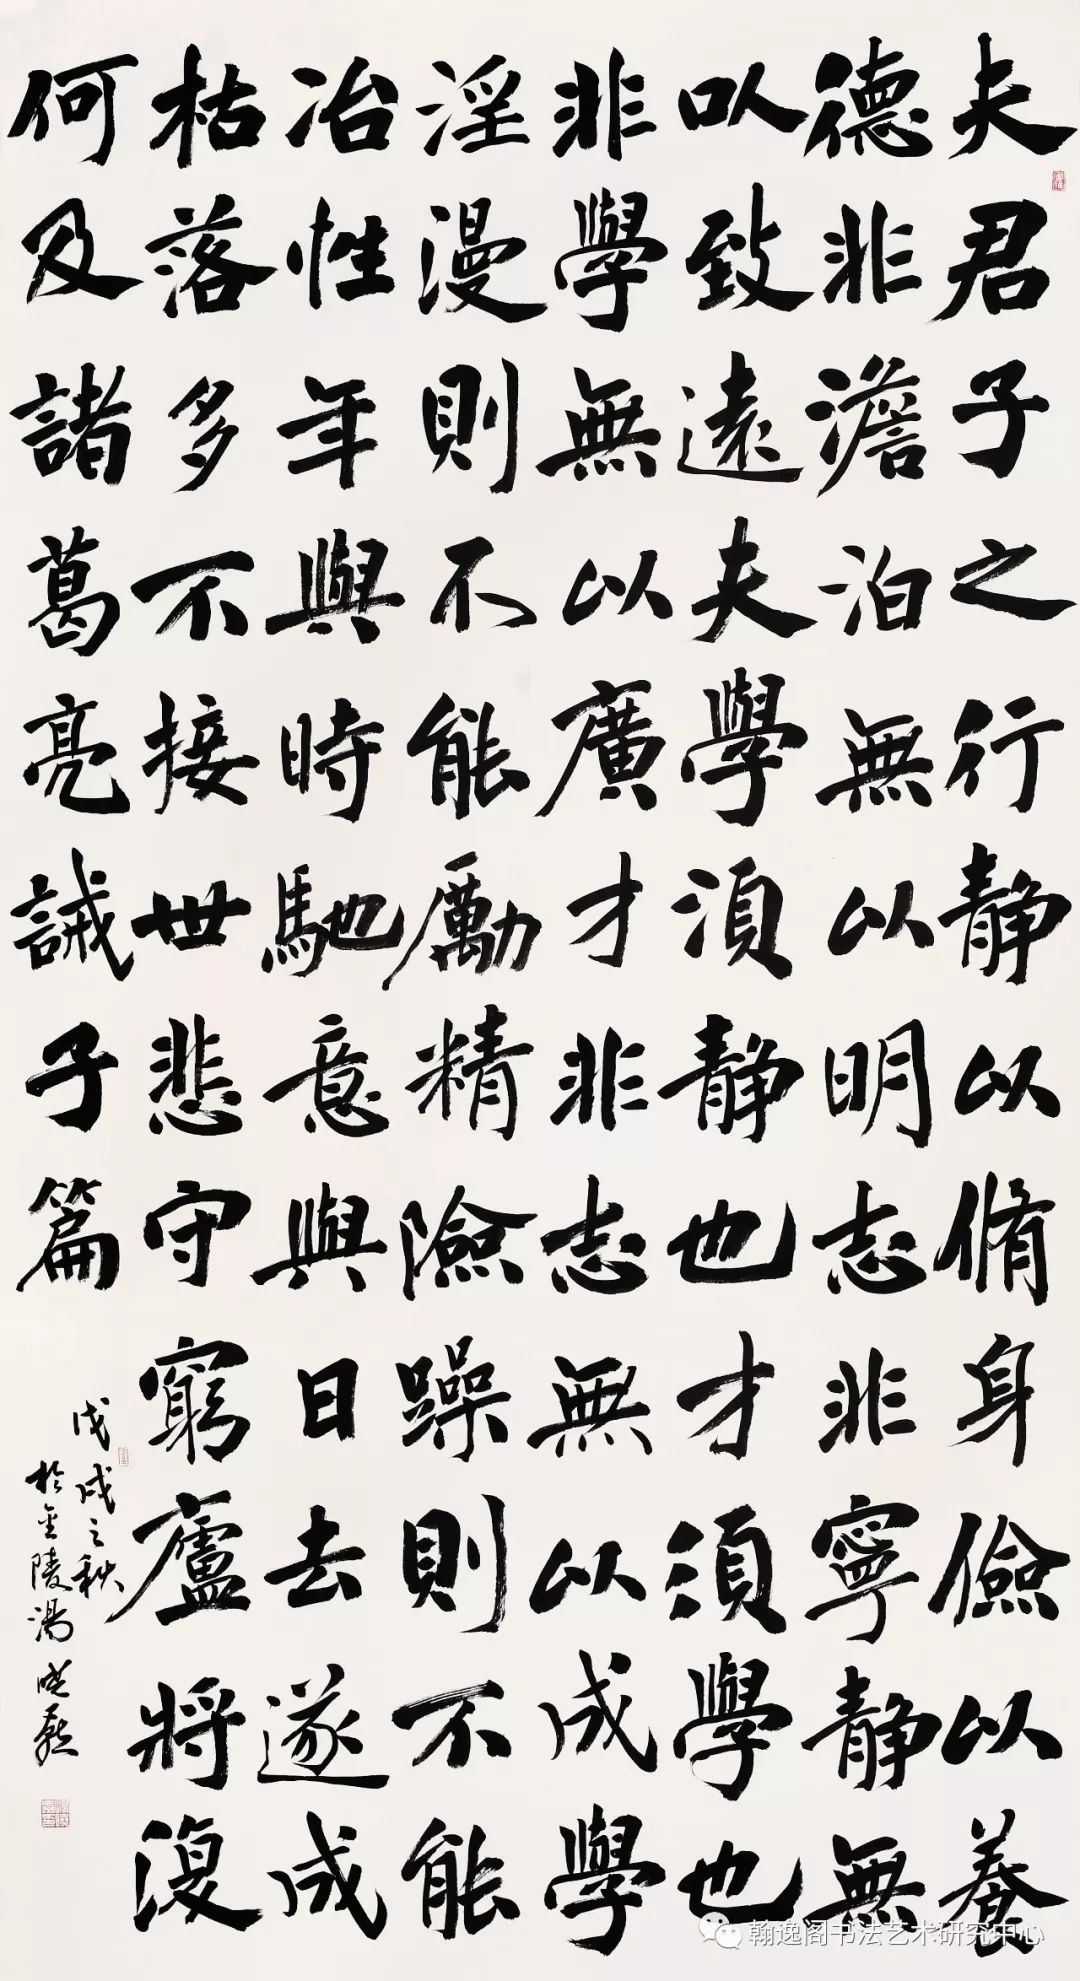 夫君子之行静以脩身儉以養
德非澹泊無以明志非寧静無
以致遠夫學須静也才須學也
非學無以廣才非志無以成學
淫漫則不能勵精險躁則不能
冶性年與時馳意與日去遂成
枯落多不接世悲守窮廬將復
何及諸葛亮誡子篇
戊戌之秋
於金陵湯
翰逸阁书法艺术研究中心